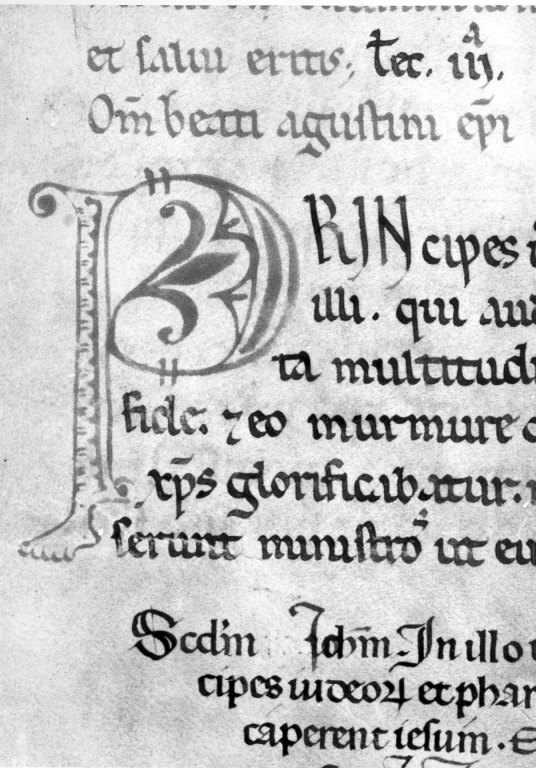 et salui eritis; lec. iij.ᵃ
Om̅ beati agustini ep̅i
PRINcipes
illi. qui aud
ta multitudi
fide. ⁊ eo murmure
xp̅s glorificabatur.
serunt ministros ut eu
Scd̅m Joh̅m. In illo
cipes iudeoꝝ et phar
caperent iesum.